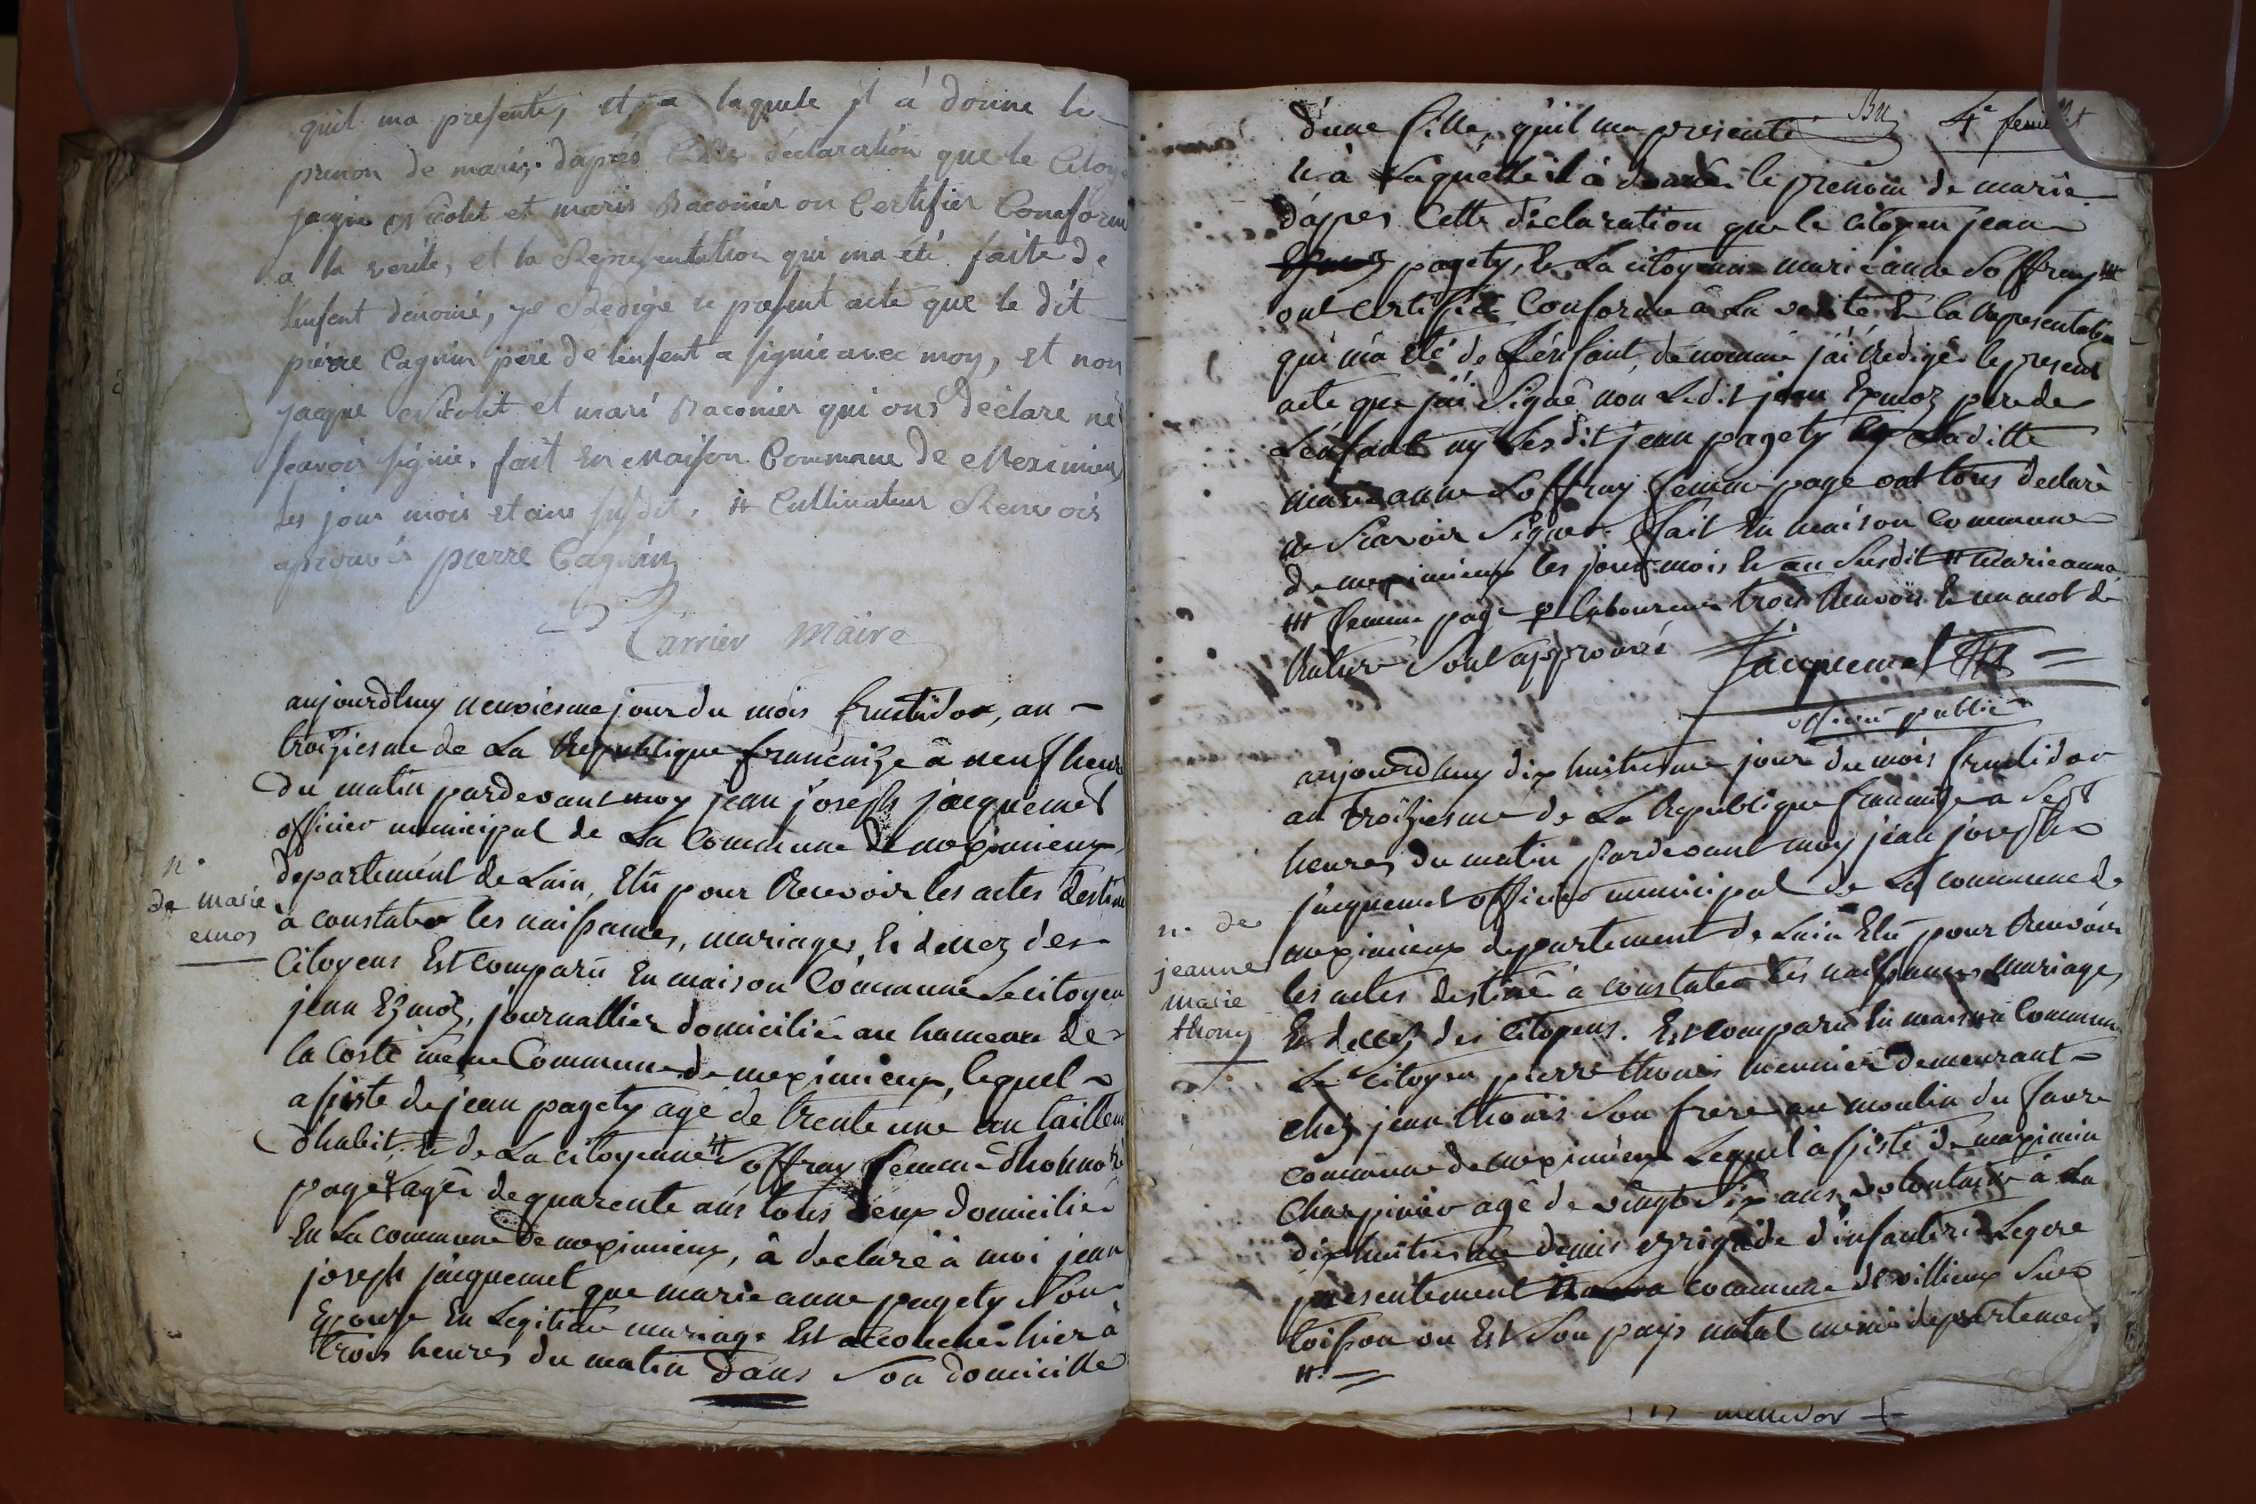 quil ma presenté, et a laquele il à donné le
prenon de marie. daprés cette déclaration que le Citoyen
jaque Nicolet et marié Raconier on Certifier Conforme
a la verité, et la Representation qui ma été faite de
lenfent dénomé, je Redigé le present acte que le dit
pierre Cagnin pere de lenfent a signie avec moy, et non
jaque Nicolet et marié Raconier qui ons déclare né
scavoir signie. fait En Maison Commune de Meximieux
les jour mois et ans susdit. # Cultivateur Renvois
aprouvés pierre Cagnin
Carrier Maire
aujourdhuy neuviesme jour du mois fructidor, an
troiziesme de La Republique francaize à neuf heures
du matin pardevant moy jean joseph jacquemet
officier municipal de La Commune de meximieux,
departement de Lain, Elû pour Recevoir les actes destinés
à constater les naissances, mariages, et decez des
Citoyens Est comparû En maison Commune Le citoyen
jean Ezmoz, journallier domicilié au hameau de
la Coste meme Commune de meximieux, lequel
assiste de jean pagety agé de trente une an tailleur
d'habit, et de La citoyenne # Soffray femme dhonnoré
page agée de quarente ans tous deux domicilié
En La commune de meximieux, à declaré à moi jean
joseph jacquemet que marie anne pagety Son
Epouse En Legitime mariage Est accouchée hier à
trois heures du matin dans Son domicille
n.
de marie
emos
4e feuillet
d'une fille, qu'il ma presenté
et à Laquelle il à donné le prenom de marie
d'apres Cette declaration que le citoyen jean
pagety, et La citoyenne marie anne Soffray #
ont certifié Conforme à La verité et la Representation
qui m'a été de L'enfant denommé j'ai Redigé le present
acte que j'ai Signé non Ledit jean Ezmoz pere de
L'enfant ny Lesdit jean pagety Laditte
marie anne Soffray femme page ont tous declaré
ne Scavoir Signer. fait En maison Commune
de meximieux les jour mois et an Susdit # marieanne
## femme page laboureur trois Renvois et un mot de
Rature Sont approuvé Jacquemet
officier public
aujourdhuy dix huitiesme jour du mois fructidor
an troiziesme de La Republique francaize a Sept
heures du matin pardevant moy jean joseph
jacquemet officier municipal de La commune de
meximieux departement de Lain Elû pour Recevoir
les actes destiné à constater les naissances mariages
Et decez des Citoyens. Est comparu En maison Commune
Le Citoyen pierre thonis meunier demeurant
chez jean thonis Son frere au moulin du favre
commune de meximieux Lequel assisté de maximin
Charpinier agé de vingt Six ans, volontaire à La
dixhuitiesme demie brigade d'infanterie Legere
presentement commune de villieux Sur
loisson ou Est Son pays natal meme departement
#
n. de
jeanne
marie
thony